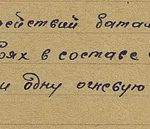 действий батал
оях в составе
и одну огневую